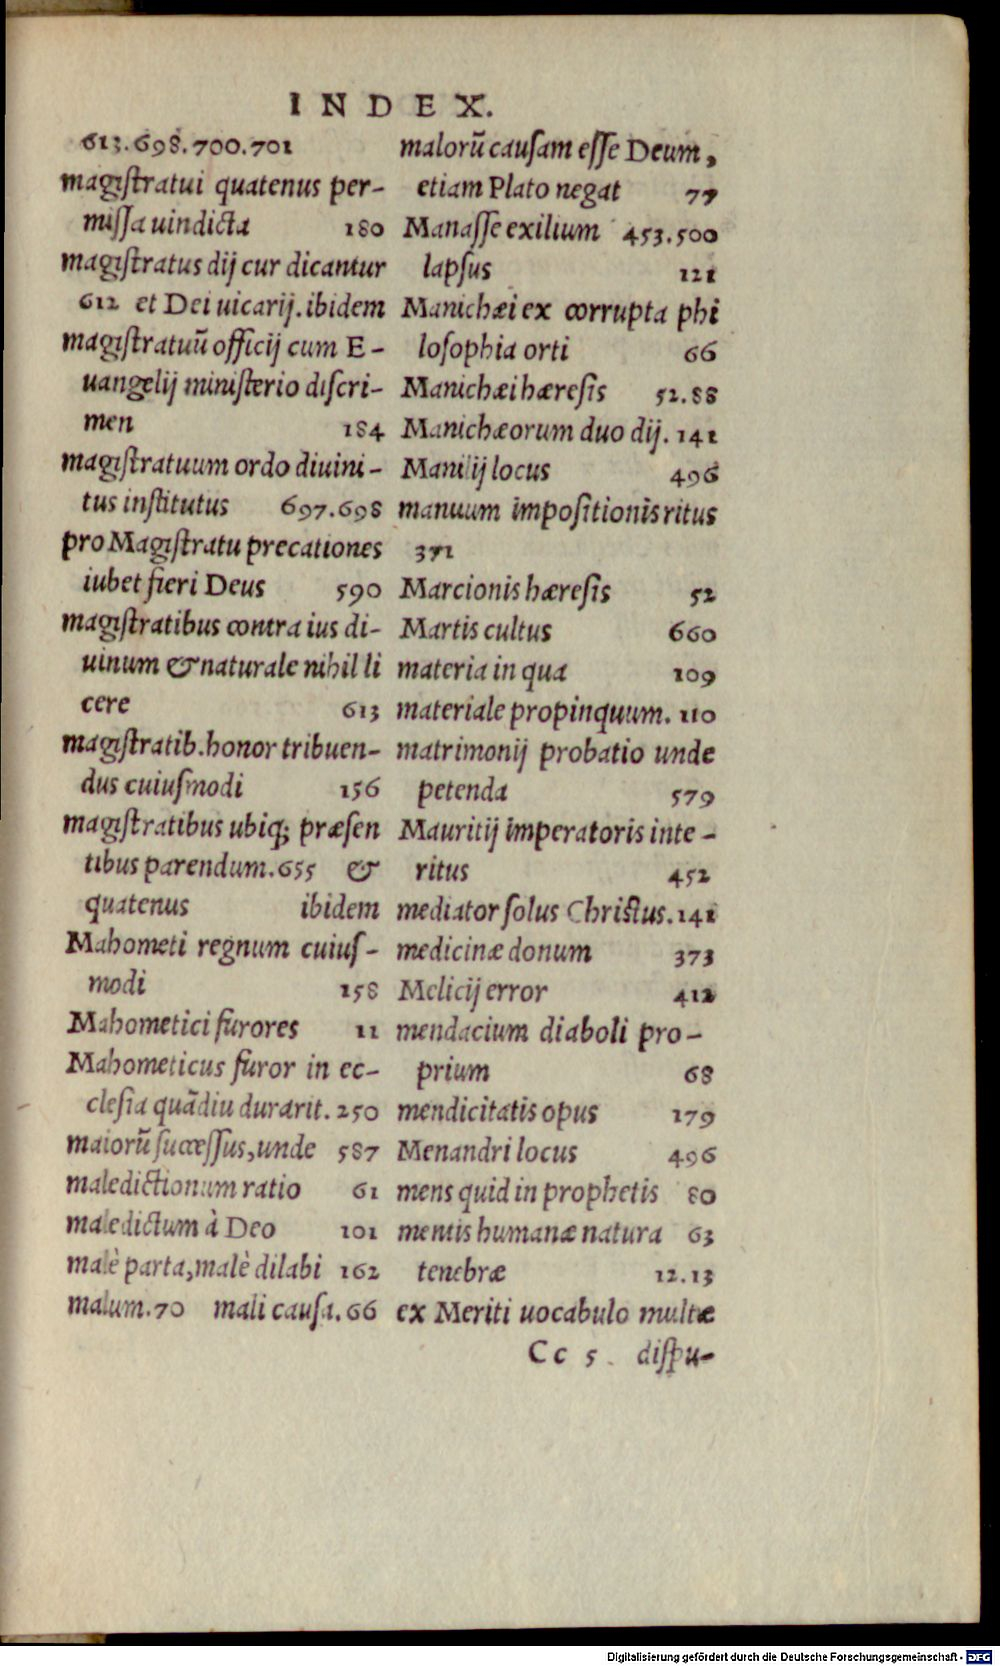 INDEX.
613.698.700.701
magiſtratui quatenus per-
miſſa uindicta 180
magiſtratus dij cur dicantur
612 et Dei uicarij. ibidem
magiſtratuũ officij cum E-
uangelij miniſterio diſcri-
men 184
magiſtratuum ordo diuini-
tus inſtitutus 697.698
pro Magiſtratu precationes
iubet fieri Deus 590
magiſtratibus contra ius di-
uinum & naturale nihil li
cere 613
magiſtratib. honor tribuen-
dus cuiuſmodi 156
magiſtratibus ubiq; præſen
tibus parendum. 655 &
quatenus ibidem
Mahometi regnum cuiuſ-
modi 158
Mahometici furores 11
Mahometicus furor in ec-
cleſia quãdiu durarit. 250
maiorũ ſucceſſus, unde 587
maledictionum ratio 61
maledictum à Deo 101
malè parta, malè dilabi 162
malum. 70 mali cauſa. 66
malorũ cauſam eſſe Deum,
etiam Plato negat 77
Manaſſe exilium 453.500
lapſus 121
Manichæi ex corrupta phi
loſophia orti 66
Manichæi hæreſis 52.88
Manichæorum duo dij. 141
Manilij locus 496
manuum impoſitionis ritus
371
Marcionis hæreſis 52
Martis cultus 660
materia in qua 109
materiale propinquum. 110
matrimonij probatio unde
petenda 579
Mauritij imperatoris inte-
ritus 452
mediator ſolus Chriſtus. 141
medicinæ donum 373
Melicij error 412
mendacium diaboli pro-
prium 68
mendicitatis opus 179
Menandri locus 496
mens quid in prophetis 80
mentis humanæ natura 63
tenebræ 12.13
ex Meriti uocabulo multæ
Cc 5. diſpu-
Digitalisierung gefördert durch die Deutsche Forschungsgemeinschaft - DFG